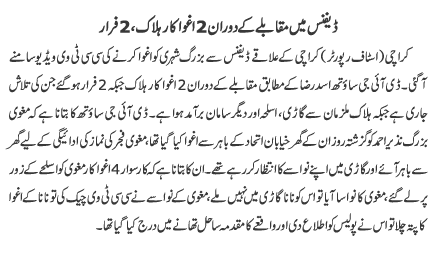 ڈیفنس میں مقابلے کے دوران 2 اغوا کار ہلاک، 2 فرار
کراچی (اسٹاف رپورٹر) کراچی کے علاقے ڈیفنس سے بزرگ شہری کو اغوا کرنے کی سی سی ٹی وی ویڈیو سامنے
آگئی۔ ڈی آئی جی ساؤتھ اسد رضا کے مطابق مقابلے کے دوران 2 اغوا کار ہلاک جبکہ 2 فرار ہو گئے جن کی تلاش
جاری ہے جبکہ ہلاک ملزمان سے گاڑی، اسلحہ اور دیگر سامان برآمد ہوا ہے۔ ڈی آئی جی ساؤتھ کا بتانا ہے کہ مغوی
بزرگ نذیر احمد کو گزشتہ روز ان کے گھر خیابان اتحاد کے باہر سے اغوا کیا گیا تھا، مغوی فجر کی نماز کی ادائیگی کے لیے گھر
سے باہر آئے اور گاڑی میں اپنے نواسے کا انتظار کر رہے تھے۔ ان کا بتانا ہے کہ کار سوار 4 اغوا کار مغوی کو اسلحے کے زور
پر لے گئے، مغوی کا نواسا آیا تو اس کو نانا گاڑی میں نہیں ملے، مغوی کے نواسے نے سی سی ٹی وی چیک کی تو نانا کے اغوا
کا پتہ چلا تو اس نے پولیس کو اطلاع دی اور واقعے کا مقدمہ ساحل تھانے میں درج کیا گیا تھا۔